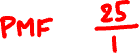 PMF 25/1